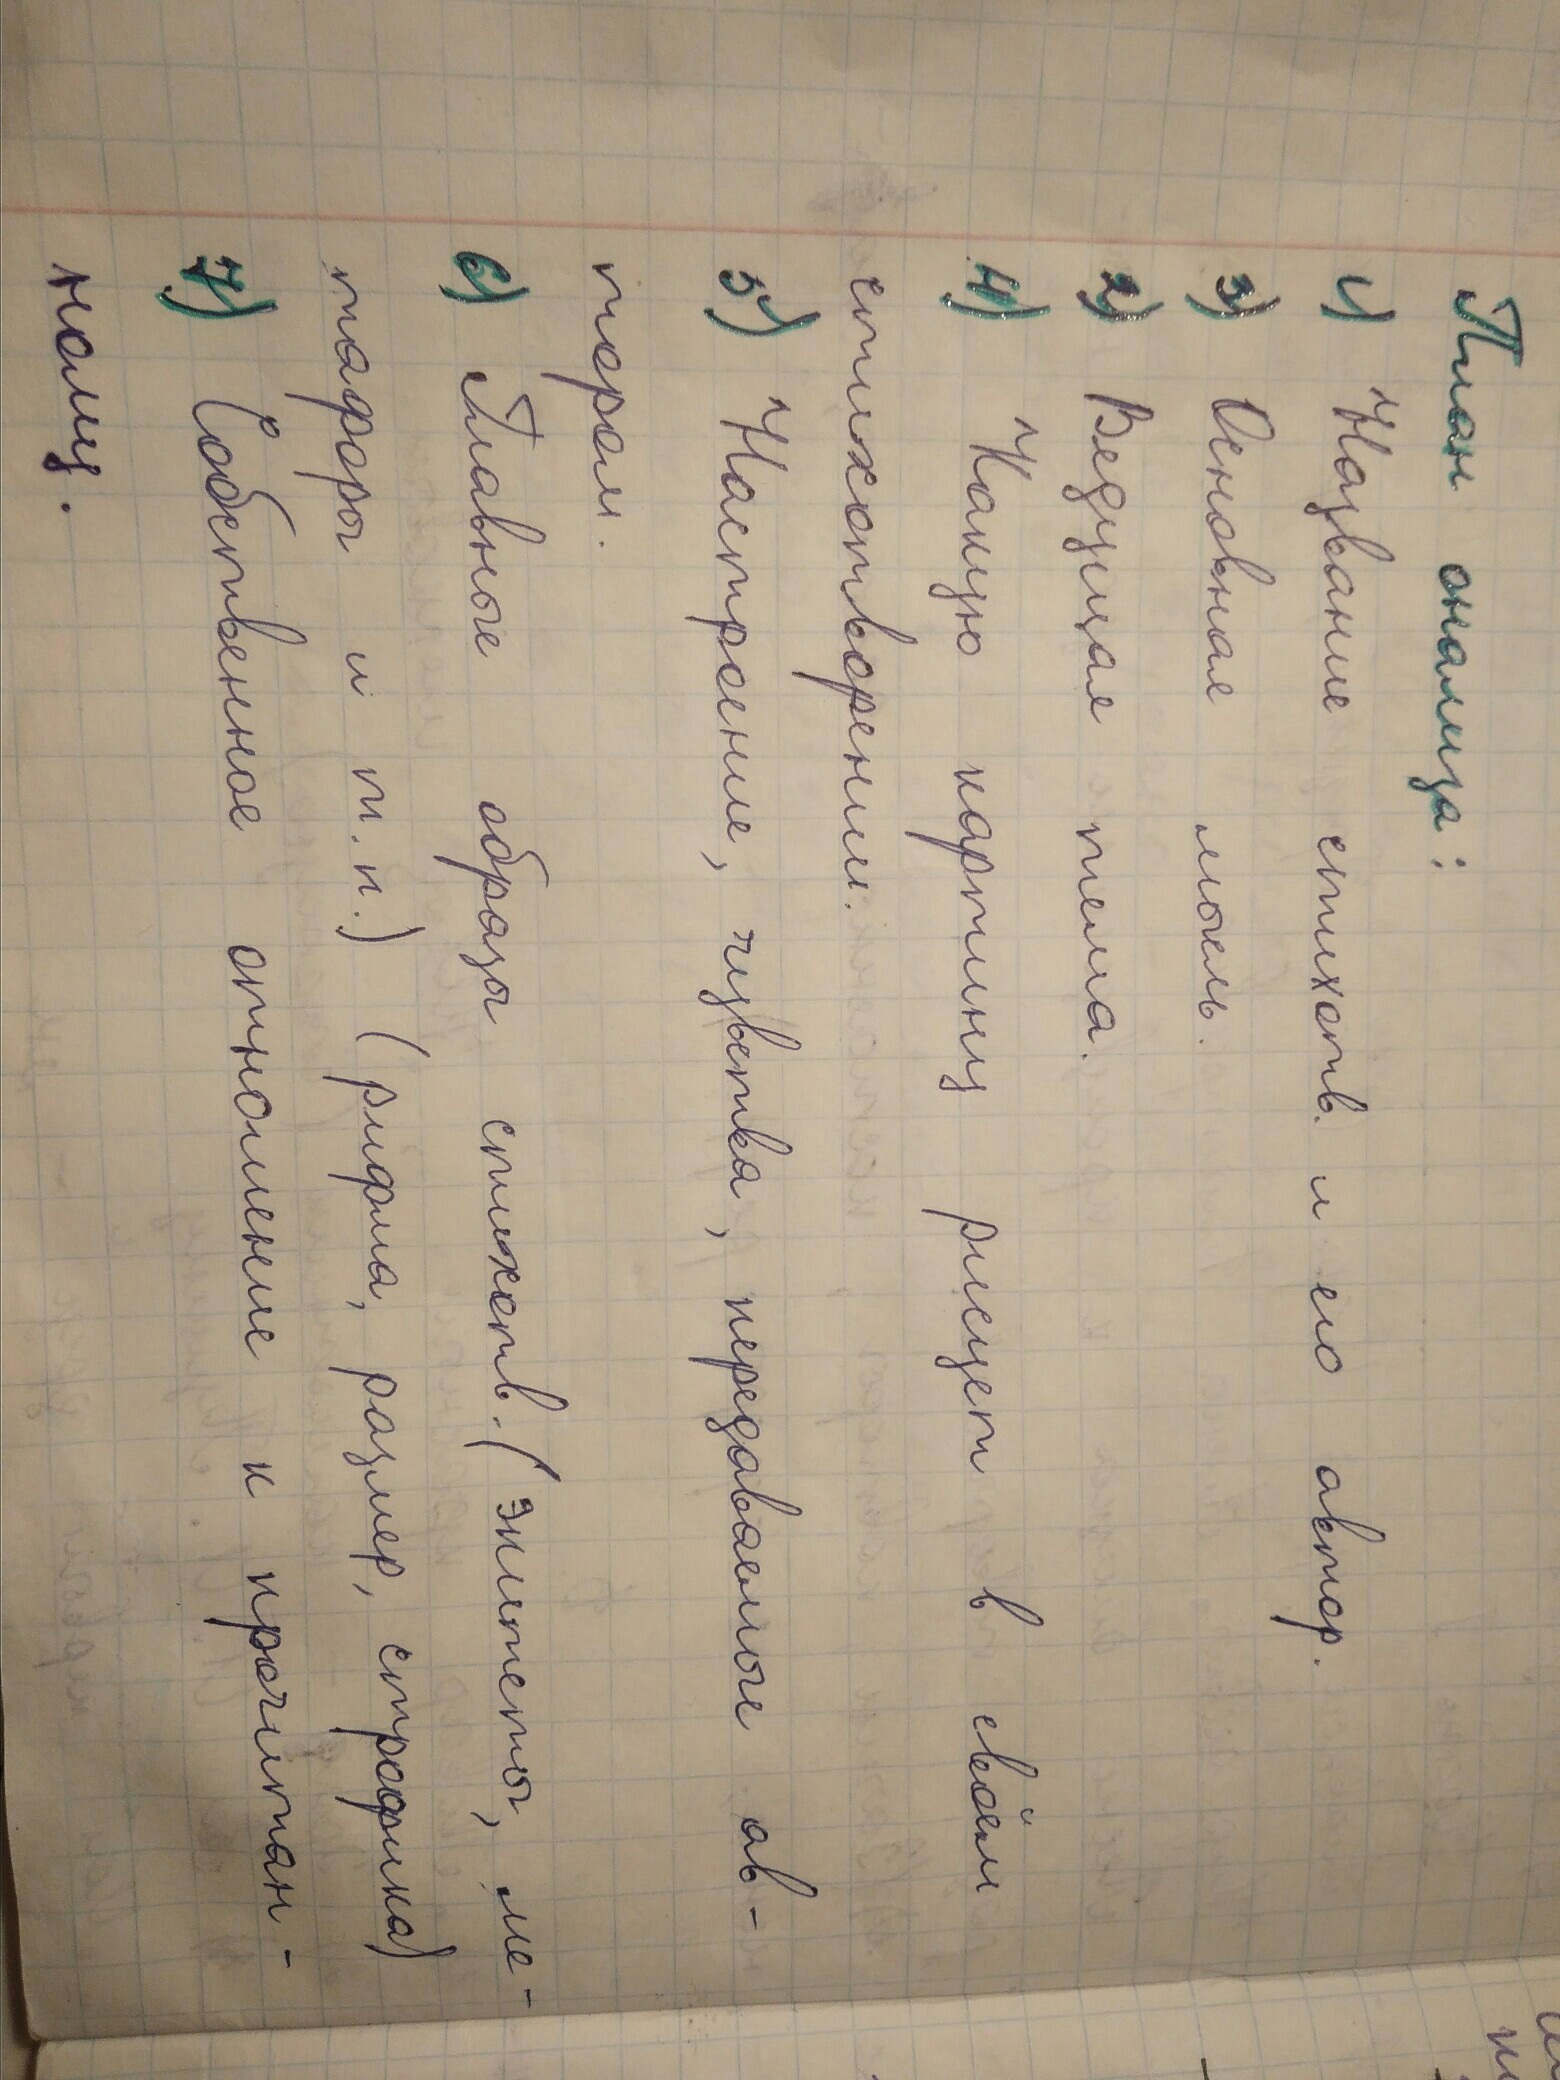 План анализа:
1) Название стихотв. и его автор.
3) Основная мысль.
2) Ведущая тема.
4) Какую картину рисует в своём
стихотворении.
5) Настроение, чувства, передаваемые ав-
тором.
6) Главные образы стихотв. (эпитеты, ме-
тафоры и т.п.) (рифма, размер, строфика)
7) Собственное отношение к прочитан-
ному.